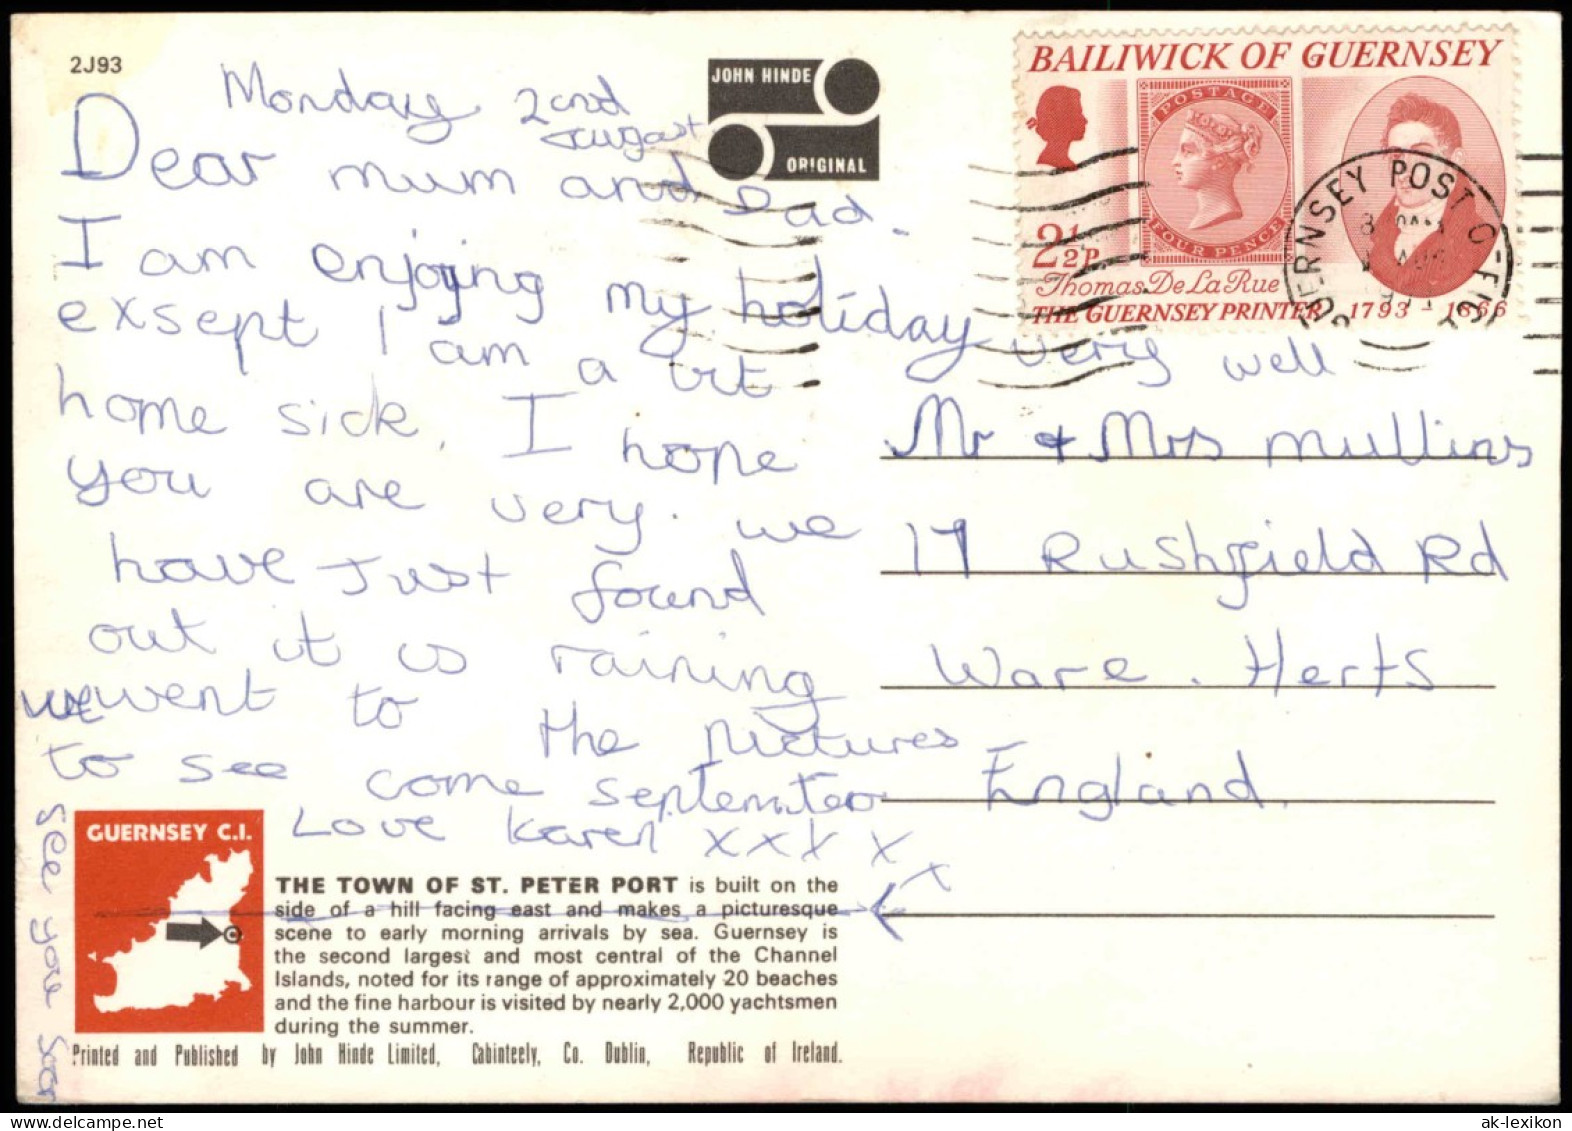 2J93
Monday 2cnd
August
Dear mum and Dad.
I am enjoying my holiday very well
exsept I am a bit
home sick. I hope
you are very. we
have Just found
out it is raining
we went to the pictures
to see come september
Love Karen xxxxx
see you soon
JOHN HINDE
ORIGINAL
BAILIWICK OF GUERNSEY
POSTAGE
FOUR PENCE
2½P
Thomas De La Rue
THE GUERNSEY PRINTER 1793 - 1866
GUERNSEY POST OFFICE
Mr + Mrs mullins
17 Rushfield Rd
Ware. Herts
England.
GUERNSEY C.I.
THE TOWN OF ST. PETER PORT is built on the
side of a hill facing east and makes a picturesque
scene to early morning arrivals by sea. Guernsey is
the second largest and most central of the Channel
Islands, noted for its range of approximately 20 beaches
and the fine harbour is visited by nearly 2,000 yachtsmen
during the summer.
Printed and Published by John Hinde Limited, Cabinteely, Co. Dublin, Republic of Ireland.
ak-lexikon